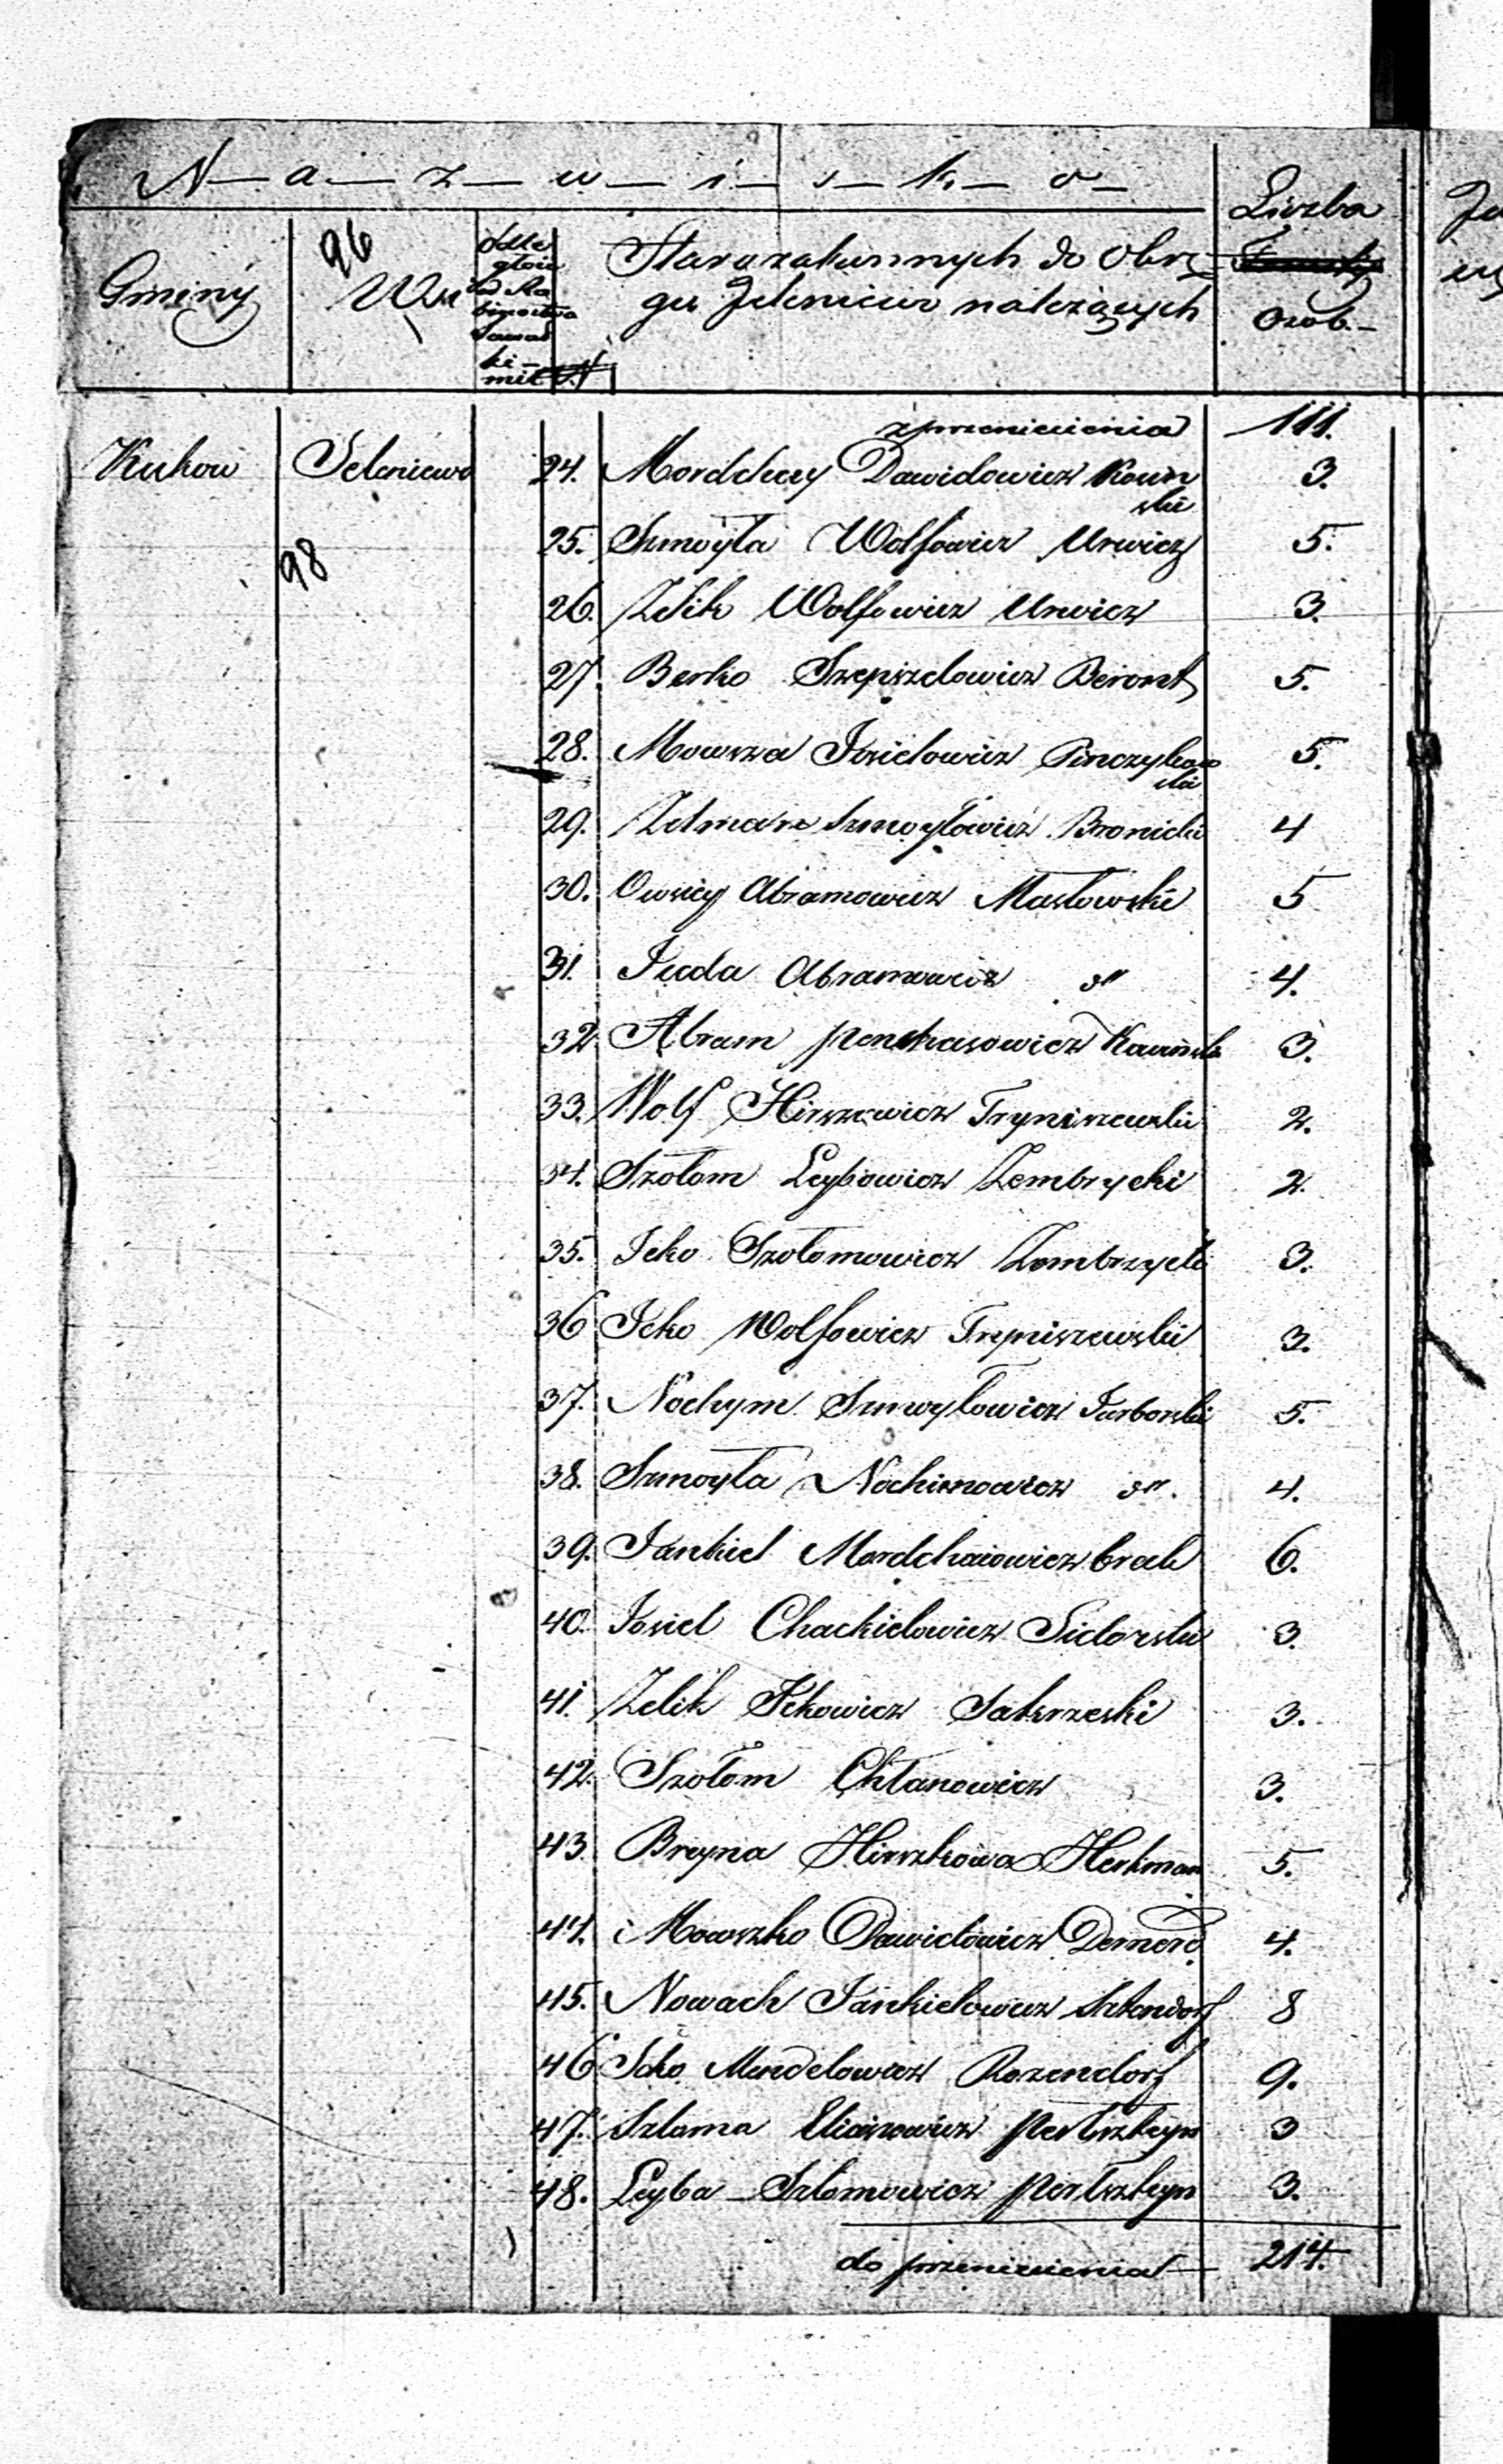 N a z w i s k o
Liczba
Gminy
96
Wsi
Odle
głość
od Ra
binostwa
Suwał
ki
mil
N
Starozakonnych do Okrę
gu Jeleniew należących
Osob.
z przeniesienia 111.
Kukow Jeleniewo 24. Mordchey Dawidowicz Kown
ski 3.
98
25. Szmoyła Wolfowicz Urwicz 5.
26. Zelik Wolfowicz Urwicz 3.
27. Berko Beront 5.
28. Mowsza Josielowicz Pinczykow
ski 5.
29. Zelman Szmoyłowicz Bronicki 4
30. Owsiey Abramowicz Masłowski 5
31. Juda Abramowicz „ 4.
32 Abram Penchasowicz 3.
33. Wolf Hirszowicz Tryniszewski 2.
34. Szołom Leybowicz Zembrycki 2.
35. Icko Szołomowicz Zembrzycki 3.
36 Icko Wolfowicz Tryniszewski 3.
37. Nochym Szmoyłowicz Jurborski 5.
38. Szmoyła Nochimowicz „ 4.
39. Jankiel Mordchaiowicz 6.
40. Josiel Chackielowicz Sidorski 3.
41. Zelik Ickowicz 3.
42. Szołom Chłanowicz 3.
43. Breyna Hirszkowa Herkman 5.
44. Mowszko Dawidowicz 4.
45. Nowach Jankielowicz 8
46 Icko Mendelowicz Rozendorf 9.
47. Szloma Eliaszowicz Perlszteyn 3
48. Leyba Szlomowicz Perlszteyn 3.
do przeniesienia 214.